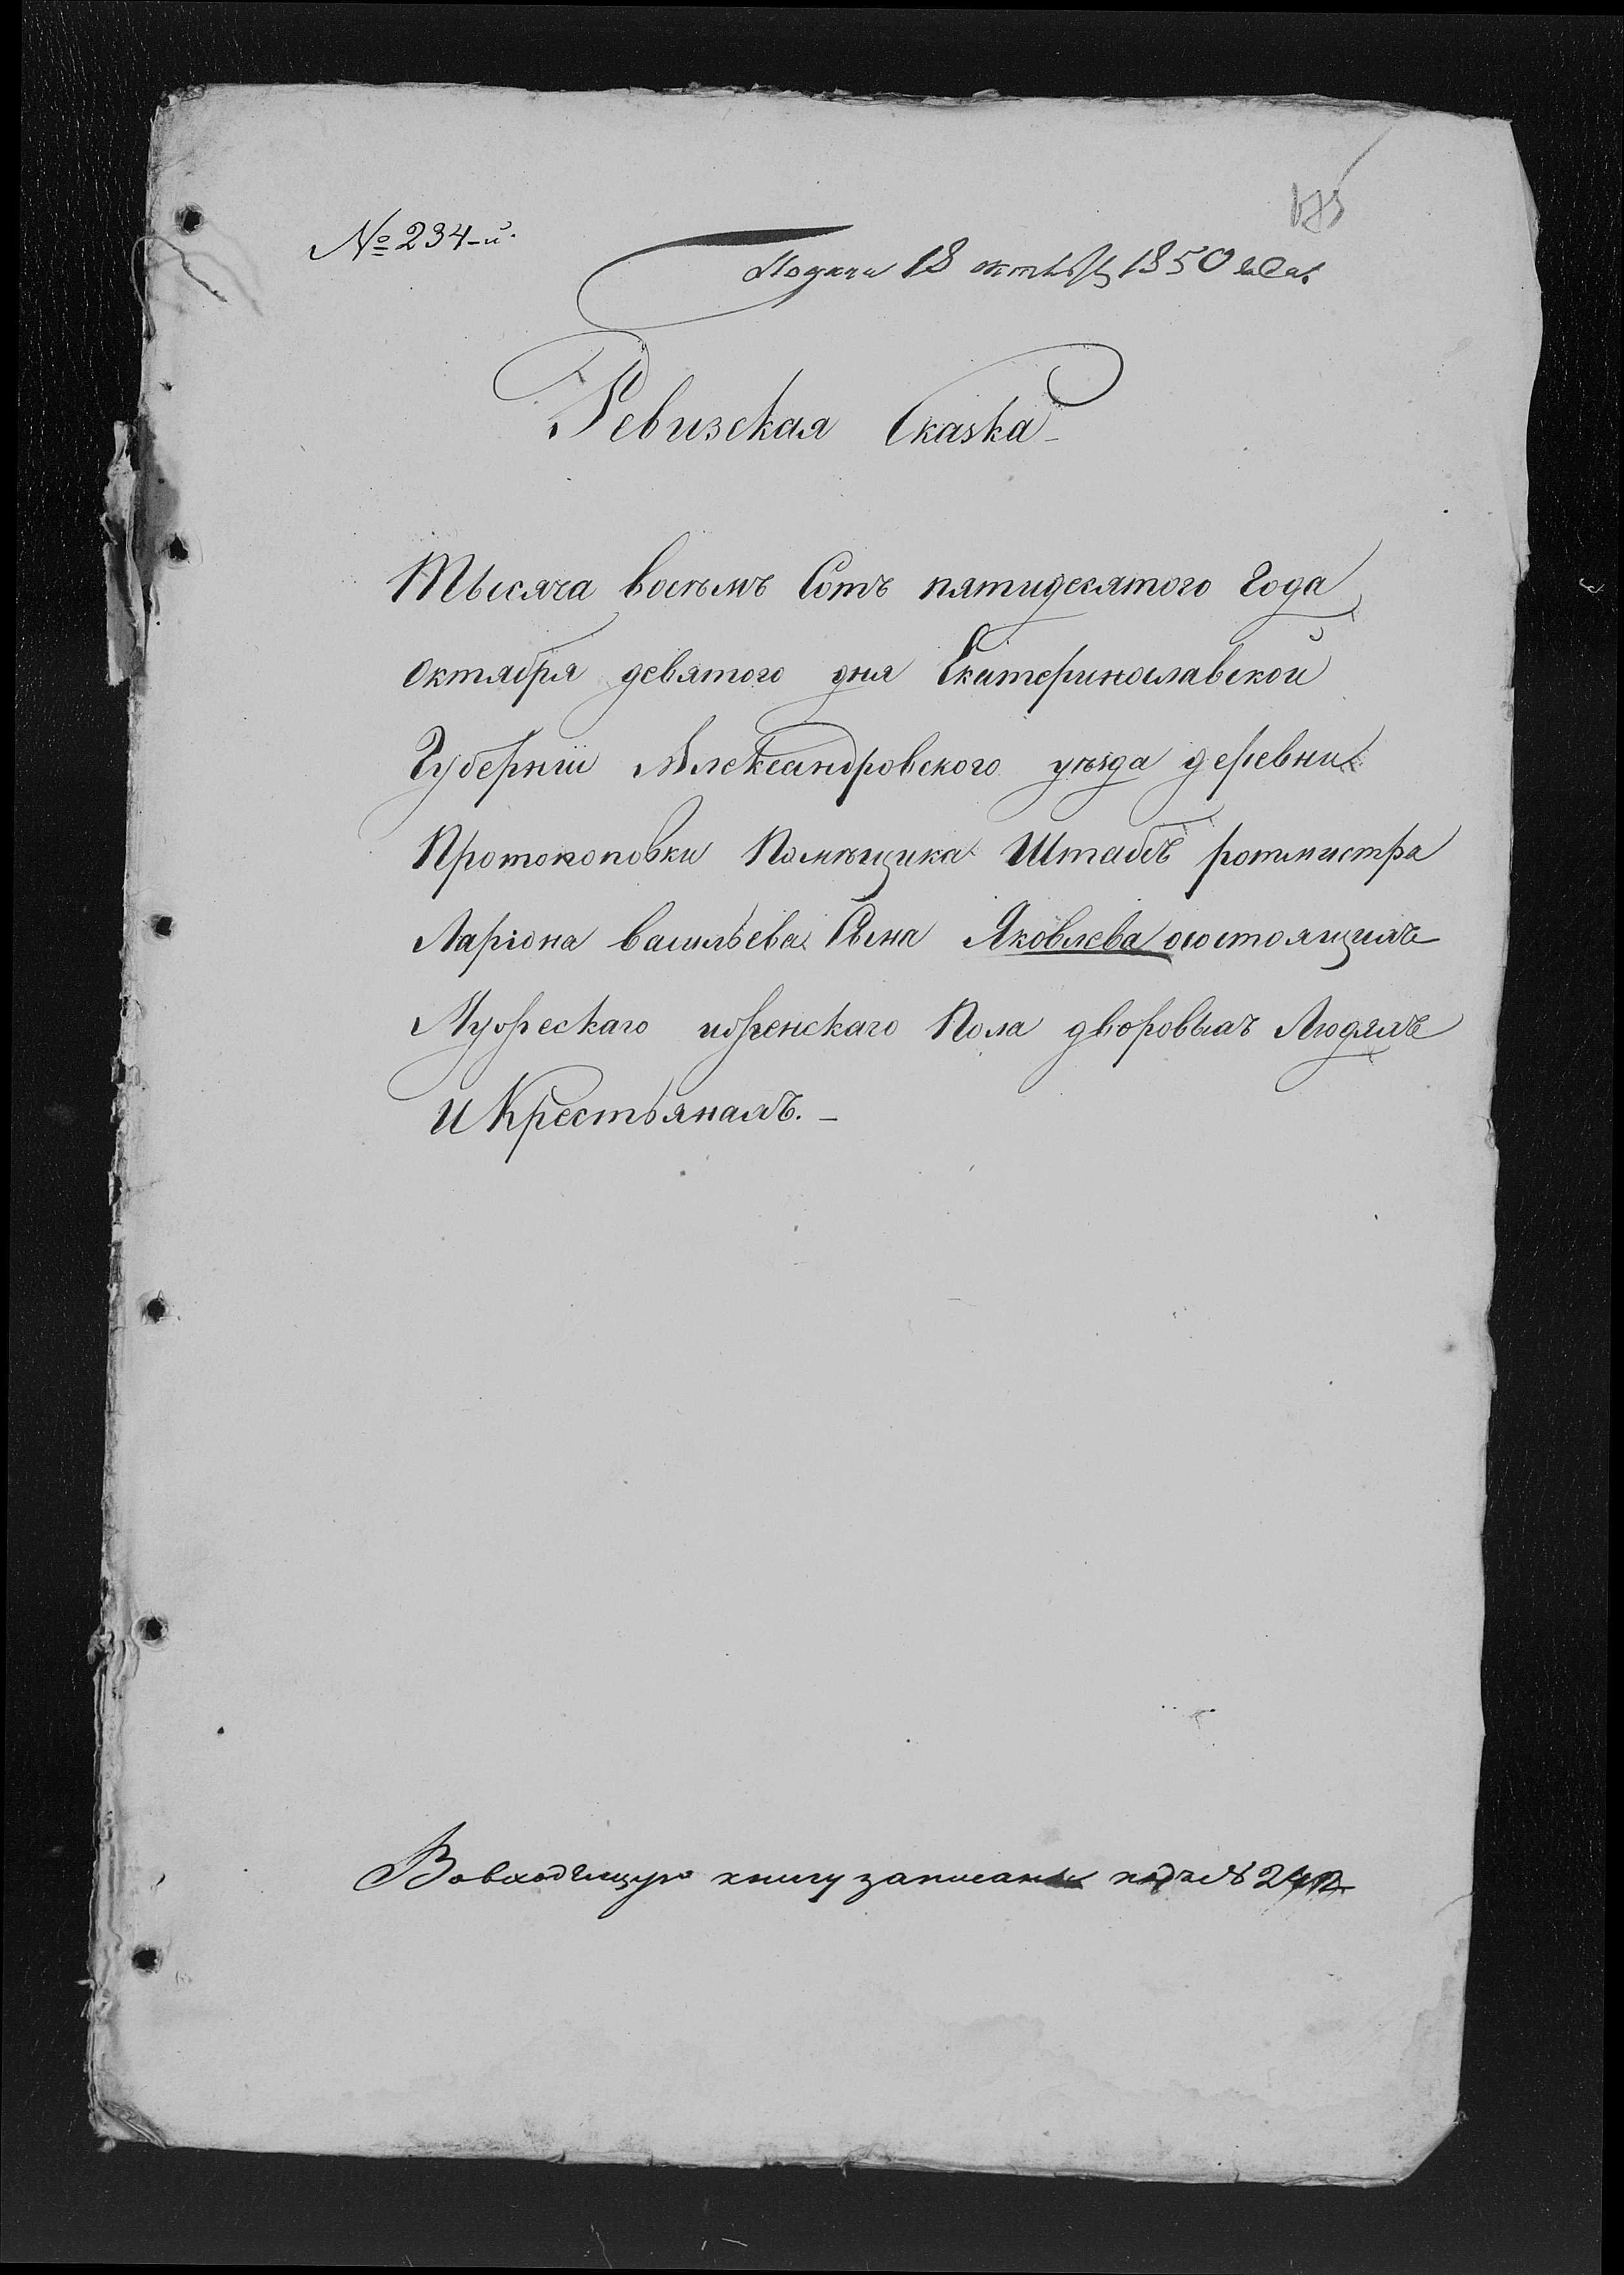 № 234-й.
Подана 18 октября 1850 года
Ревизская Сказка
Тысяча восемъ Сотъ пятидесятого Года
Октября девятого дня Екатеринославской
Губернiи Александровского уѣзда деревни
Протокоповки Помѣщика Штабъ ротмистра
Ларiона васильева Сына Яковлева осостоящихъ
Мужескаго иженскаго Пола дворовыхъ Людяхъ
И Крестьянахъ. –
Вовходящую книгу записана подъ №